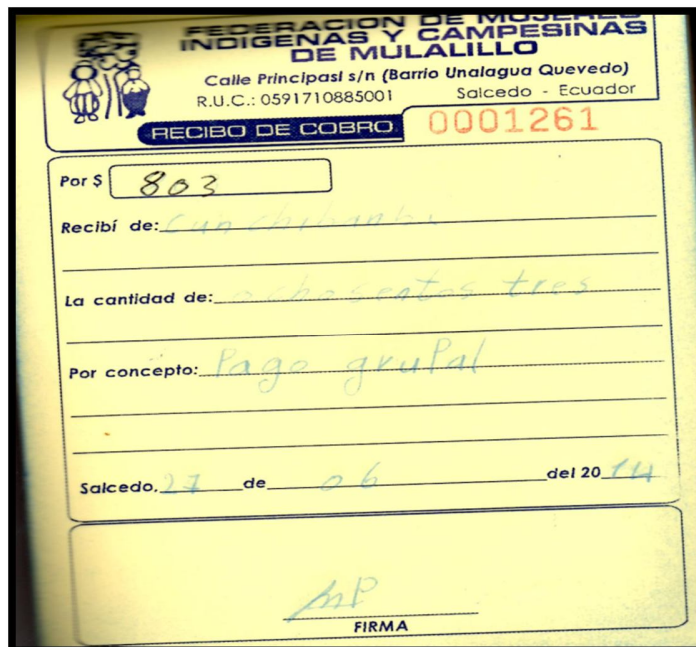 FEDERACION DE MUJERES
INDIGENAS Y CAMPESINAS
DE MULALILLO
Calle Principasl s/n (Barrio Unalagua Quevedo)
R.U.C.: 0591710885001 Salcedo - Ecuador
RECIBO DE COBRO 0001261
Por $ 803
Recibí de: Cunchibamba
La cantidad de: ochosentos tres
Por concepto: Pago gruPal
Salcedo, 27 de 06 del 20 14
MP
FIRMA